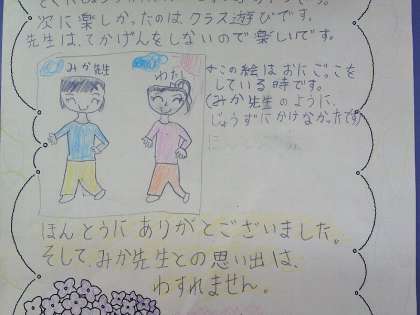 次に楽しかったのはクラス遊びです。
先生は、てかげんをしないので楽しいです。
みか先生
わたし
←この絵はおにごっこを
している時です。
(みか先生のように、
じょうずにかけなかったです)
ほんとうにありがとございました。
そして、みか先生との思い出は、
わすれません。